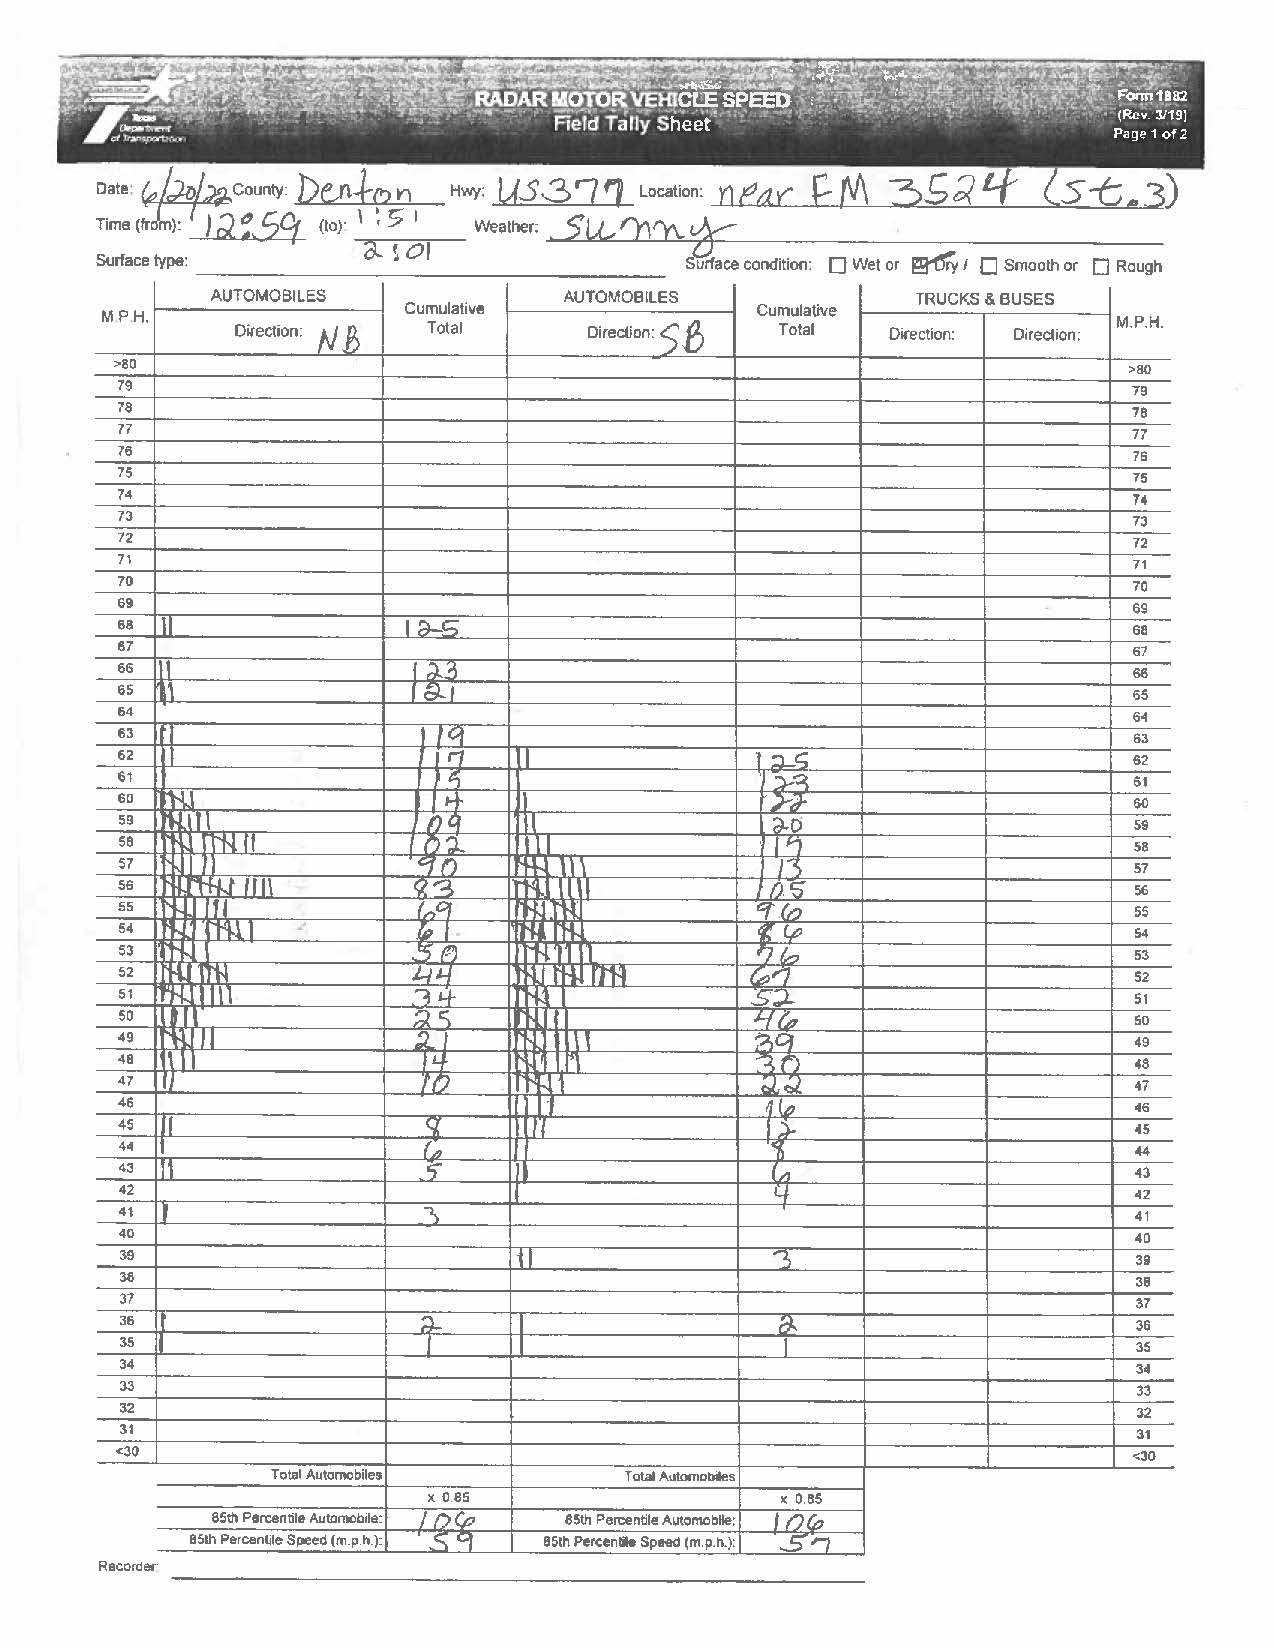 RADAR MOTOR VEHICLE SPEED
Field Tally Sheet
Form 1882
(Rev. 3/19)
Page 1 of 2
Texas
Department
of Transportation
Date: 6/20/22 County: Denton Hwy: US377 Location: near FM 3524 (St.3)
Time (from): 12:59 (to): 1:51 Weather: Sunny
2:01
Surface type: Surface condition: Wet or Dry / Smooth or Rough
M.P.H. AUTOMOBILES Cumulative Total AUTOMOBILES Cumulative Total TRUCKS & BUSES M.P.H.
Direction: NB Direction: SB Direction: Direction:
>80 >80
79 79
78 78
77 77
76 76
75 75
74 74
73 73
72 72
71 71
70 70
69 69
68 125 68
67 67
66 123 66
65 121 65
64 64
63 119 63
62 117 125 62
61 115 123 61
60 114 122 60
59 109 120 59
58 102 119 58
57 90 113 57
56 83 105 56
55 69 96 55
54 61 86 54
53 50 76 53
52 44 67 52
51 34 52 51
50 25 46 50
49 21 39 49
48 14 30 48
47 10 22 47
46 16 46
45 8 12 45
44 6 8 44
43 5 6 43
42 4 42
41 3 41
40 40
39 3 39
38 38
37 37
36 2 2 36
35 1 1 35
34 34
33 33
32 32
31 31
<30 <30
Total Automobiles Total Automobiles
x 0.85 x 0.85
85th Percentile Automobile: 106 85th Percentile Automobile: 106
85th Percentile Speed (m.p.h.): 59 85th Percentile Speed (m.p.h.): 57
Recorder: